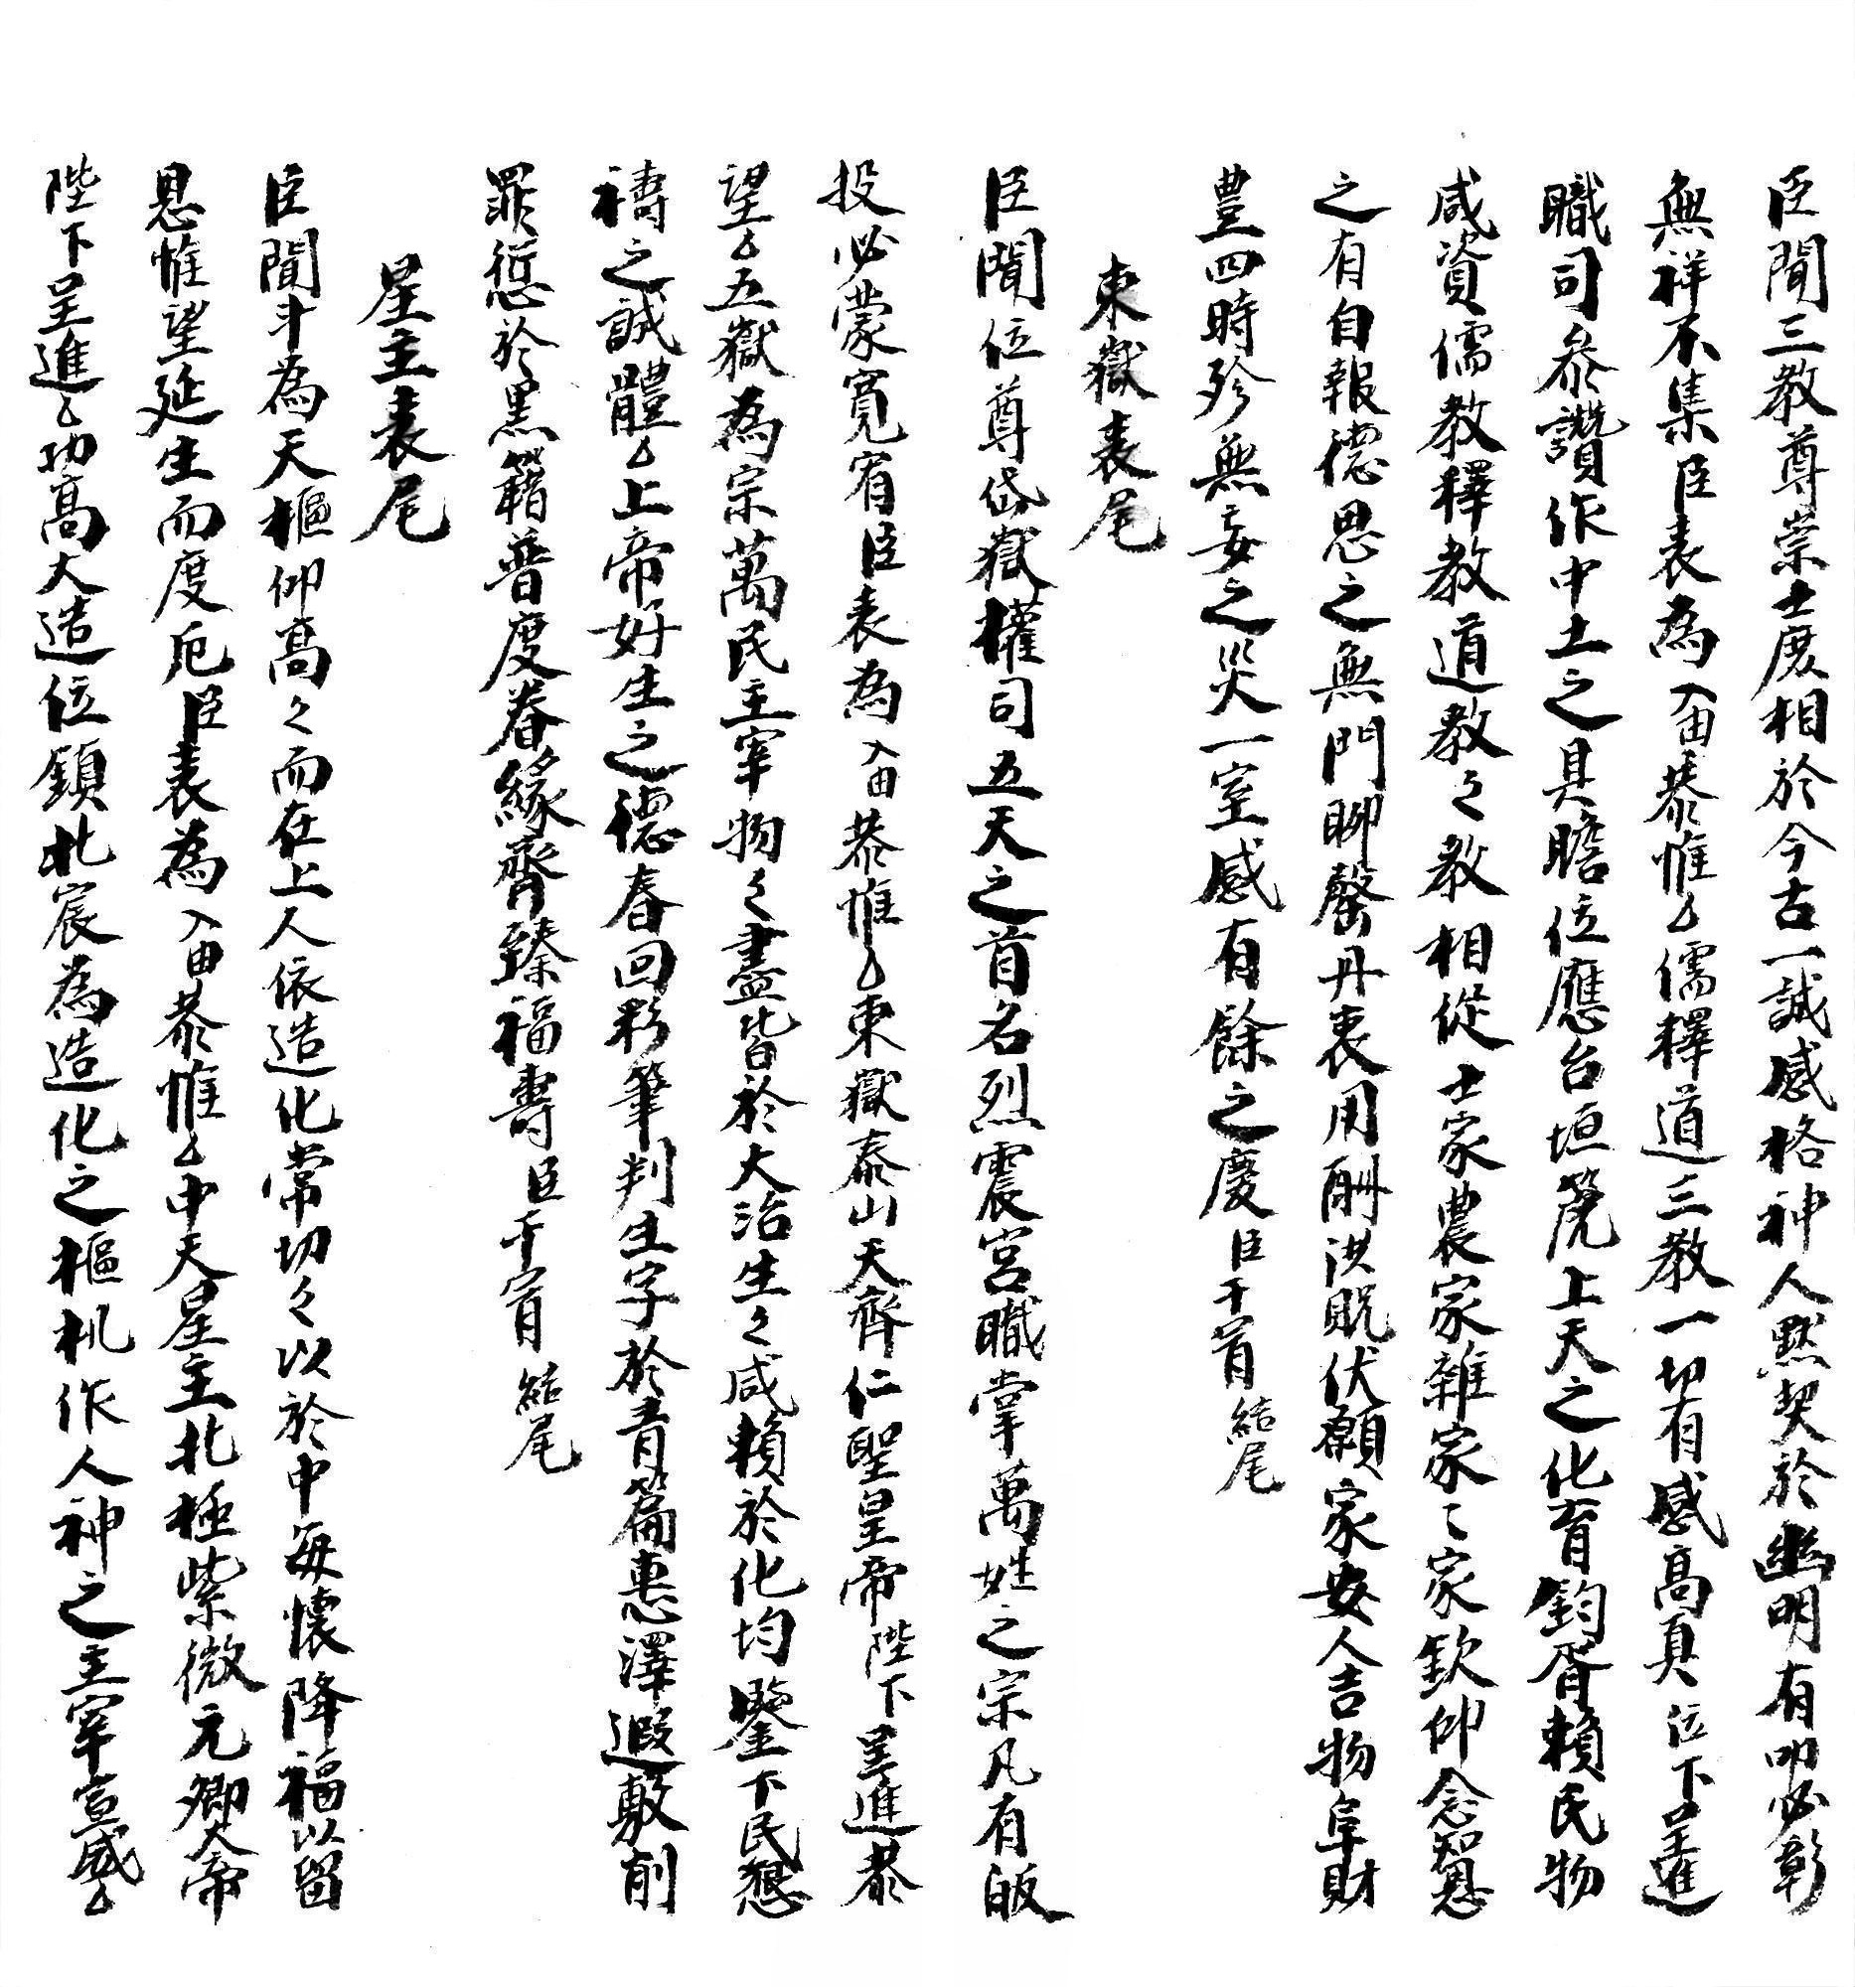 臣聞三教尊崇士庶相於今古一誠感格神人默契於幽明有叩必彰
無祥不集臣表為入由恭惟〻儒釋道三教一切有感高真位下呈進
職司參讚作中土之具瞻位應台垣筦上天之化育鈞胥賴民物
咸資儒教釋教道教〻教相從士家農家雜家〻家欽仰念知恩
之有自報德思之無門聊罄丹衷用酬洪貺伏願家安人吉物阜財
豊四時殄無妄之災一室感有餘之慶臣干冐結尾
東嶽表尾
臣聞位尊岱嶽權司五天之首名烈震宮職掌萬姓之宗凡有皈
投必蒙寬宥臣表為入由恭惟〻東嶽泰山天齊仁聖皇帝陛下呈進恭
望〻五嶽為宗萬民主宰物〻盡皆於大治生〻咸賴於化均鑒下民懇
禱之誠體〻上帝好生之德春回彩筆判生字於青篇惠澤遐敷削
罪愆於黑籍普度眷緣齊臻福壽臣干冐結尾
星主表尾
臣聞斗為天樞仰高〻而在上人依造化常切〻以於中每懷降福以留
恩惟望延生而度厄臣表為入由恭惟〻中天星主北極紫微元卿大帝
陛下呈進〻功高大造位鎮北宸為造化之樞机作人神之主宰宣威〻